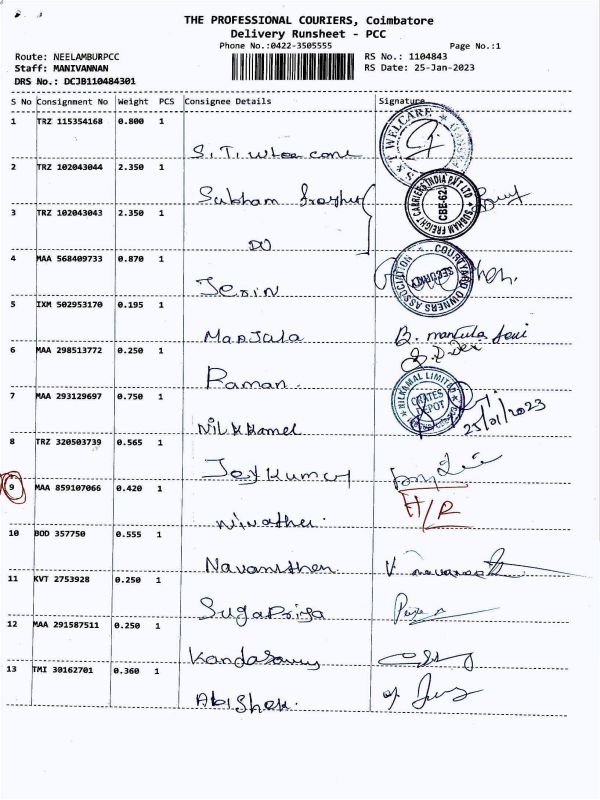 THE PROFESSIONAL COURIERS, Coimbatore
Delivery Runsheet - PCC
Phone No.:0422-3505555 Page No.:1
Route: NEELAMBURPCC RS No.: 1104843
Staff: MANIVANNAN RS Date: 25-Jan-2023
DRS No.: DCJB110484301
S No Consignment No Weight PCS Consignee Details Signature
1 TRZ 115354168 0.800 1
S.T.
2 TRZ 102043044 2.350 1
Subham
3 TRZ 102043043 2.350 1
4 MAA 568409733 0.870 1
Jerin
5 IXM 502953170 0.195 1
Manjula B. manjula
6 MAA 298513772 0.250 1
Raman.
7 MAA 293129697 0.750 1
Nilkkamel 25/01/2023
8 TRZ 320503739 0.565 1
JeyKumar
9 MAA 859107066 0.420 1 H/R
10 BOD 357750 0.555 1
Navaneethan V
11 KVT 2753928 0.250 1
SugaPriya
12 MAA 291587511 0.250 1
Kandasamy
13 TMI 30162701 0.360 1
Abishek.
S & T WELCARE
SUBHAM FREIGHT CARRIERS INDIA PVT LTD
CBE-62
COURTYARD OWNERS ASSOCIATION
SECURITY
NILKAMAL LIMITED